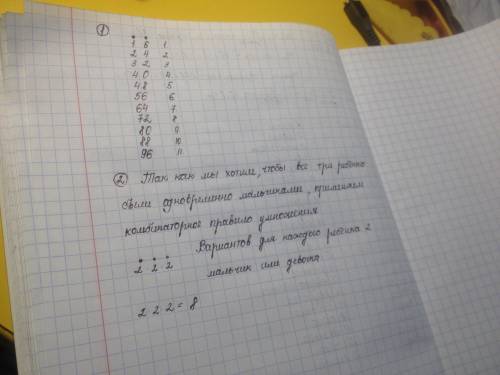 1
1 6 1
2 4 2
3 2 3
4 0 4
48 5
56 6
64 7
72 8
80 9
88 10
96 11
2 Так как мы хотим, чтобы все три ребенка
были одновременно мальчиками, применяем
комбинаторное правило умножения
Вариантов для каждого ребенка 2
2 2 2 мальчик или девочка
2 2 2 = 8